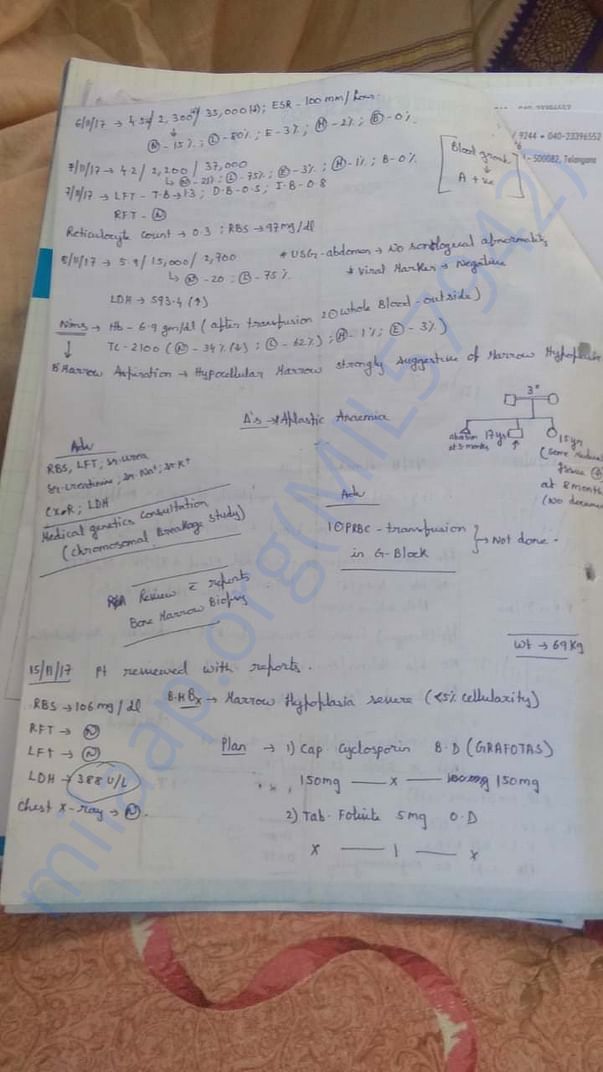 9244 • 040-23396552
- 500082, Telangana
6/11/17 → 4.5 / 2,300 / 35,000 ; ESR - 100 mm/hour.
↓
(N) - 15% ; (L) - 80% ; E - 3% ; (M) - 2% ; (B) - 0%
7/11/17 → 4.2 / 2,200 / 37,000
↳ (N) - 21% ; (L) - 75% ; (E) - 3% ; (M) - 1% ; B - 0%
[Blood group
↓
A +ve]
7/11/17 → LFT - T.B → 1.3 ; D.B - 0.5 ; I.B - 0.8
RFT - (N)
Reticulocyte count → 0.3 ; RBS → 97 mg/dl
8/11/17 → 5.9 / 15,000 / 2,700
↳ (N) - 20 ; - 75%
* USG - abdomen → No sonological abnormality
* Viral Marker → Negative
LDH → 593.4 (↑)
Nims → Hb - 6.9 gm/dl (after transfusion 2 (1) whole Blood - outside)
↓ TC - 2100 (N - 34% (↓) ; (L) - 62%) ; (M) - 1% ; (E) - 3%)
B Marrow Aspiration → Hypocellular Marrow strongly suggestive of Marrow Hypoplasia
Δ's → Aplastic Anaemia
3°
at 5 months 17 yrs 15 yr
at 8 months
Adv
RBS, LFT, Sr. urea
Sr. Creatinine, Sr. Na+, Sr. K+
CXR ; LDH
Medical genetics Consultation
(Chromosomal Breakage study)
Adv
1 (1) PRBC - transfusion
in G-Block } → Not done.
Review c̄ reports
Bone Marrow Biopsy
Wt → 69 Kg
15/11/17 Pt reviewed with reports.
RBS → 106 mg/dl
RFT → (N)
LFT → (N)
LDH → 388 U/L
Chest X-ray → (N).
B.M Bx → Marrow Hypoplasia severe (<5% cellularity)
Plan → 1) Cap. Cyclosporin B.D (GRAFOTAS)
150mg — x — 150mg
2) Tab. Folvite 5mg O.D
x — 1 — x
milaap.org(MIL579421)